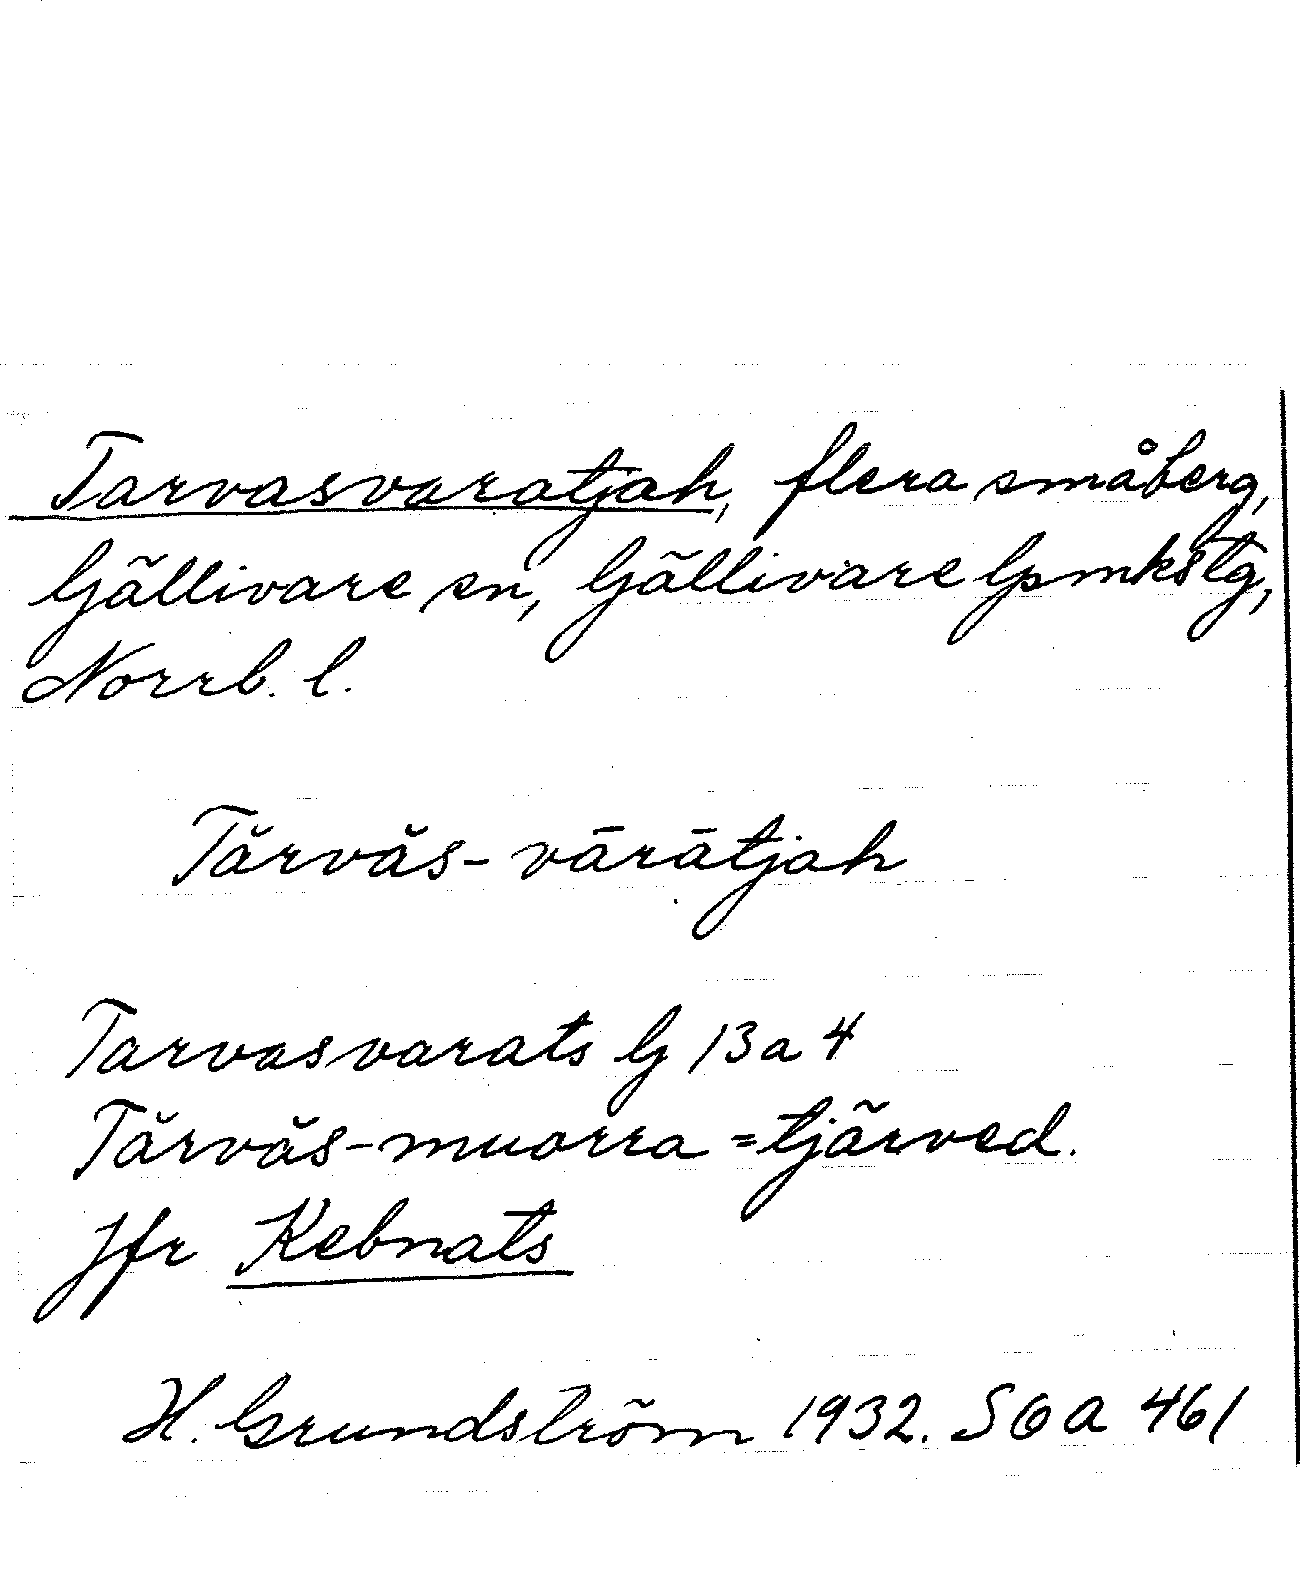 Tarvasvaratjah, flera småberg,
Gällivare sn, Gällivare lpmkstg,
Norrb. l.
Tărvăs-vārātjah
Tarvasvarats G 13 a 4
Tărvăs-muorra = tjärved.
Jfr Kebnats
H. Grundström 1932. SOA 461